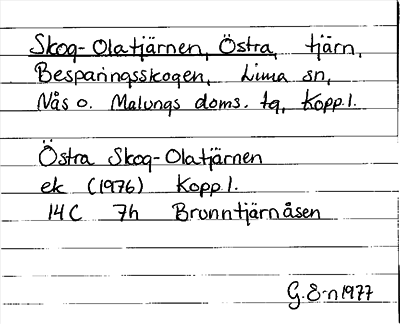 Skog-Olatjärnen, Östra, tjärn,
Besparingsskogen, Lima sn,
Nås o. Malungs doms. tg, Kopp.l.
Östra Skog-Olatjärnen
ek (1976) Kopp.l.
14C 7h Brunntjärnåsen
G.E-n 1977